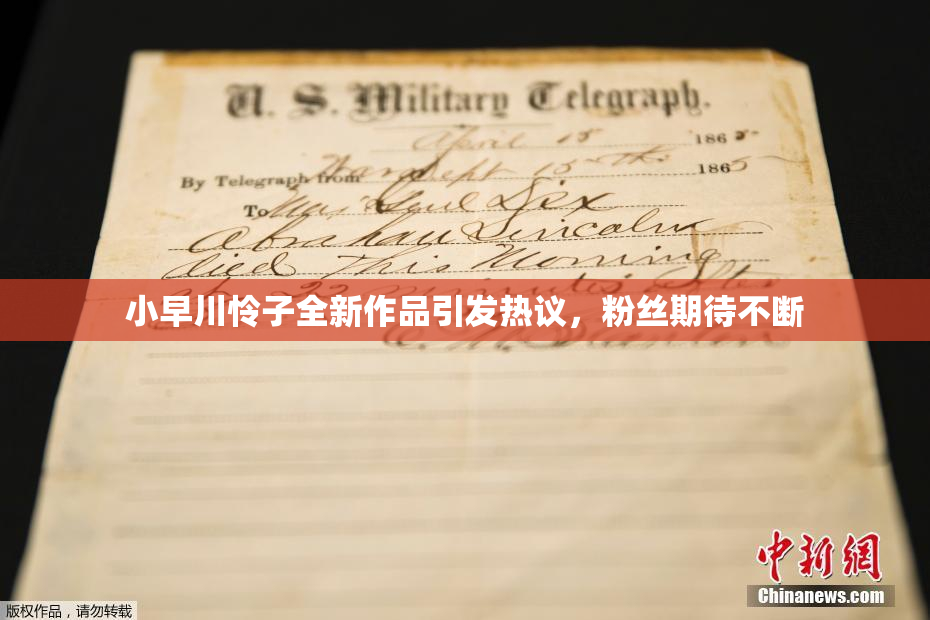 U. S. Military Telegraph.
April 15 1865
By Telegraph from War Dept 15th 1865
To Maj Genl Dix
Abraham Lincoln
died This Morning
at 22 minutes after
小早川怜子全新作品引发热议，粉丝期待不断
E. M. Stanton
中新网
Chinanews.com
版权作品，请勿转载